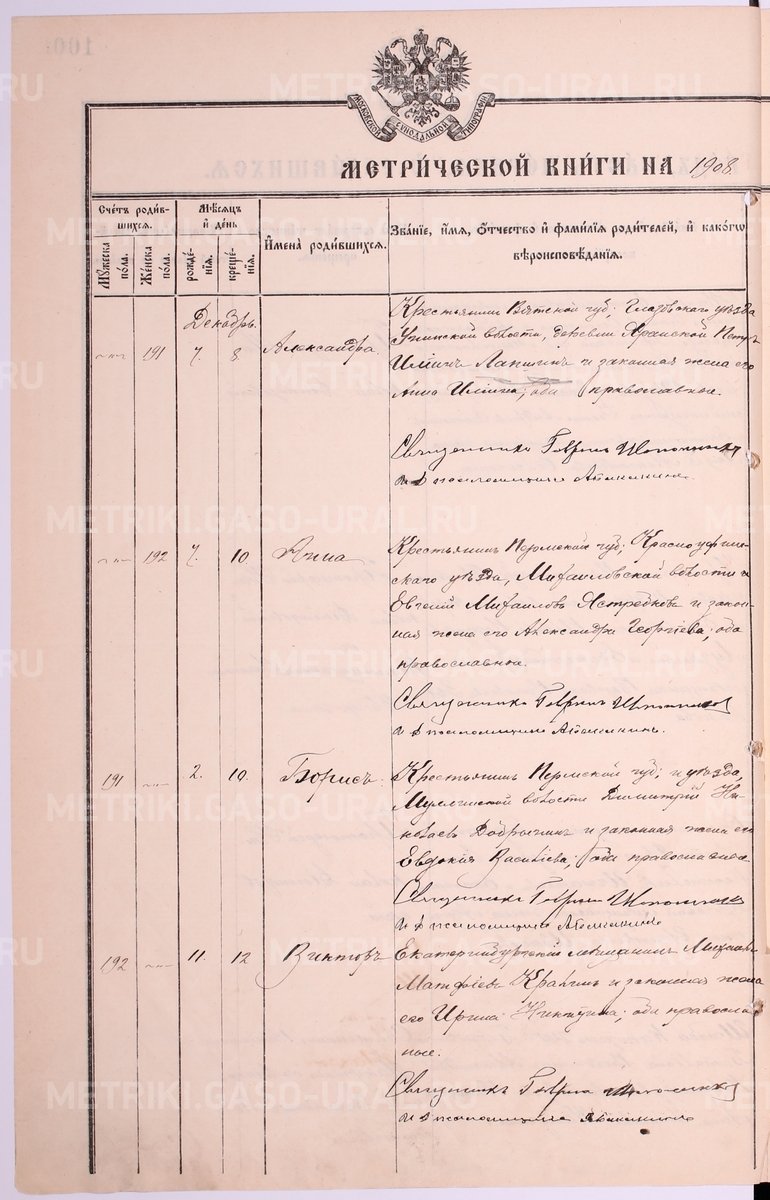 МОСКОВСКОЙ СѴНОДАЛЬНОЙ ТИПОГРАФІИ
МЕТРИ́ЧЕСКОЙ КНИ́ГИ НА 1908
Сче́тъ роди́в-
шихсѧ.
Мꙋ́жеска по́ла.
Же́нска по́ла.
Мѣ́сѧцъ
и҆ де́нь
рожде́-
нїѧ.
креще́-
нїѧ.
И҆мена̀ роди́вшихсѧ.
Зва́нїе, и҆́мѧ, ѻ҆́тчество и҆ фами́лїѧ роди́телей, и҆ како́гѡ
вѣроисповѣ́данїѧ.
Декабрь
191 7. 8 Александра.
Крестьянинъ Вятской губ; Глазовскаго уѣзда
волости, деревни Петръ
Ильинъ Лапшинъ и законная жена его
Анна Ильина; оба православные.
Священникъ Гавріилъ
И. д. псаломщика
192 7. 10 Анна
Крестьянинъ Пермской губ; Красноуфим-
скаго уѣзда, Михаиловской волости
Евгеній Михаиловъ Ястребковъ и закон-
ная жена его Александра Георгіева; оба
православные.
Священникъ Гавріилъ
И. д. псаломщика
191 2. 10. Борисъ.
Крестьянинъ Пермской губ; и уѣзда,
волости Димитрій Ни-
колаевъ Добрынинъ и законная жена его
Евдокия Васильева; оба православные.
Священникъ Гавріилъ
И. д. псаломщика
192 11. 12 Викторъ
Екатеринбургскій мѣщанинъ Михаилъ
Матфіевъ и законная жена
его Ирина Никитина; оба православ-
ные.
Священникъ Гавріилъ
И. д. псаломщика
METRIKI.GASO-URAL.RU